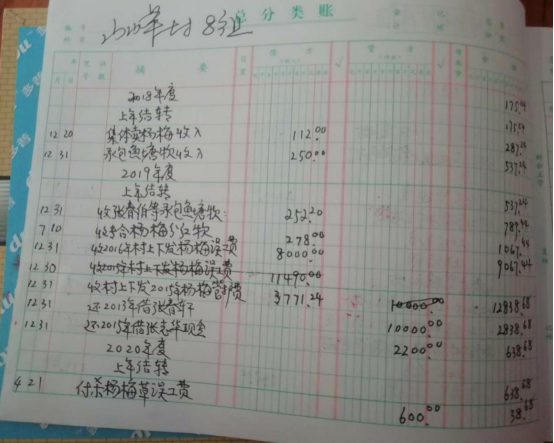 总分类账
村 8组
摘要
借方 贷方
2018年度
上年结转 175.44
12 20 集体卖杨梅收入 112.00 287.44
12 31 承包鱼塘款收入 250.00 537.44
2019年度
上年结转 537.44
12 31 收张春伯等承包鱼塘款 252.20 789.44
7 10 收李合杨梅分红款 278.00 1067.44
12 31 收2016年村上下发杨梅误工费 8000.00 9067.44
12 30 收2015年村上下发杨梅误工费 11490.00
12 31 收村上下发2015年杨梅管费 3771.24 12838.68
12 31 还2013年借张春 10000.00 2838.68
12 31 还2015年借张志华现金 2200.00 638.68
2020年度
上年结转 638.68
4 21 付杀杨梅草误工费 600.00 38.68